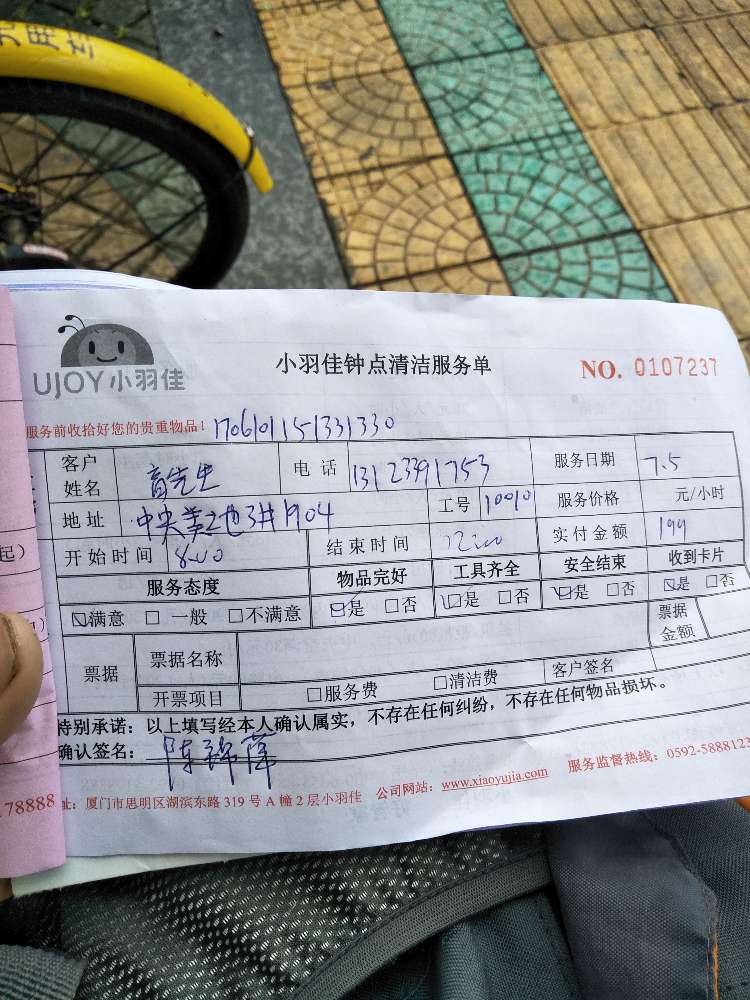 UJOY小羽佳
小羽佳钟点清洁服务单
NO. 0107237
服务前收拾好您的贵重物品！1706101151331330
客户姓名 先生 电话 13123391753 服务日期 7.5
地址 中央美地3#1904 工号 10010 服务价格 元/小时
开始时间 8:00 结束时间 12:00 实付金额 199
服务态度 物品完好 工具齐全 安全结束 收到卡片
☑满意 □一般 □不满意 ☑是 □否 ☑是 □否 ☑是 □否 ☑是 □否
票据 票据名称 票据金额
开票项目 □服务费 □清洁费 客户签名
特别承诺：以上填写经本人确认属实，不存在任何纠纷，不存在任何物品损坏。
确认签名：陈锦萍
服务监督热线：0592-5888123
址：厦门市思明区湖滨东路 319 号 A 幢 2 层小羽佳 公司网站：www.xiaoyujia.com
78888
起）